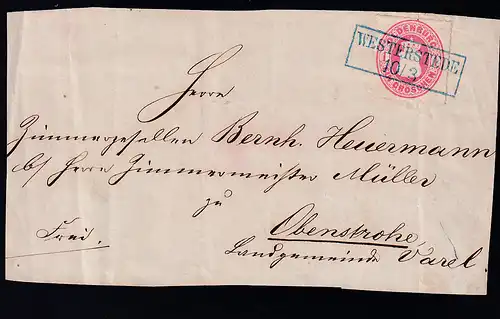 OLDENBURG
EIN GROSCHEN
WESTERSTEDE
10/3
Herrn
Zimmergesellen Bernh. Heuermann
b/ Herrn Zimmermeister Müller
zu
Obenstrohe,
Frei.
Landgemeinde Varel.